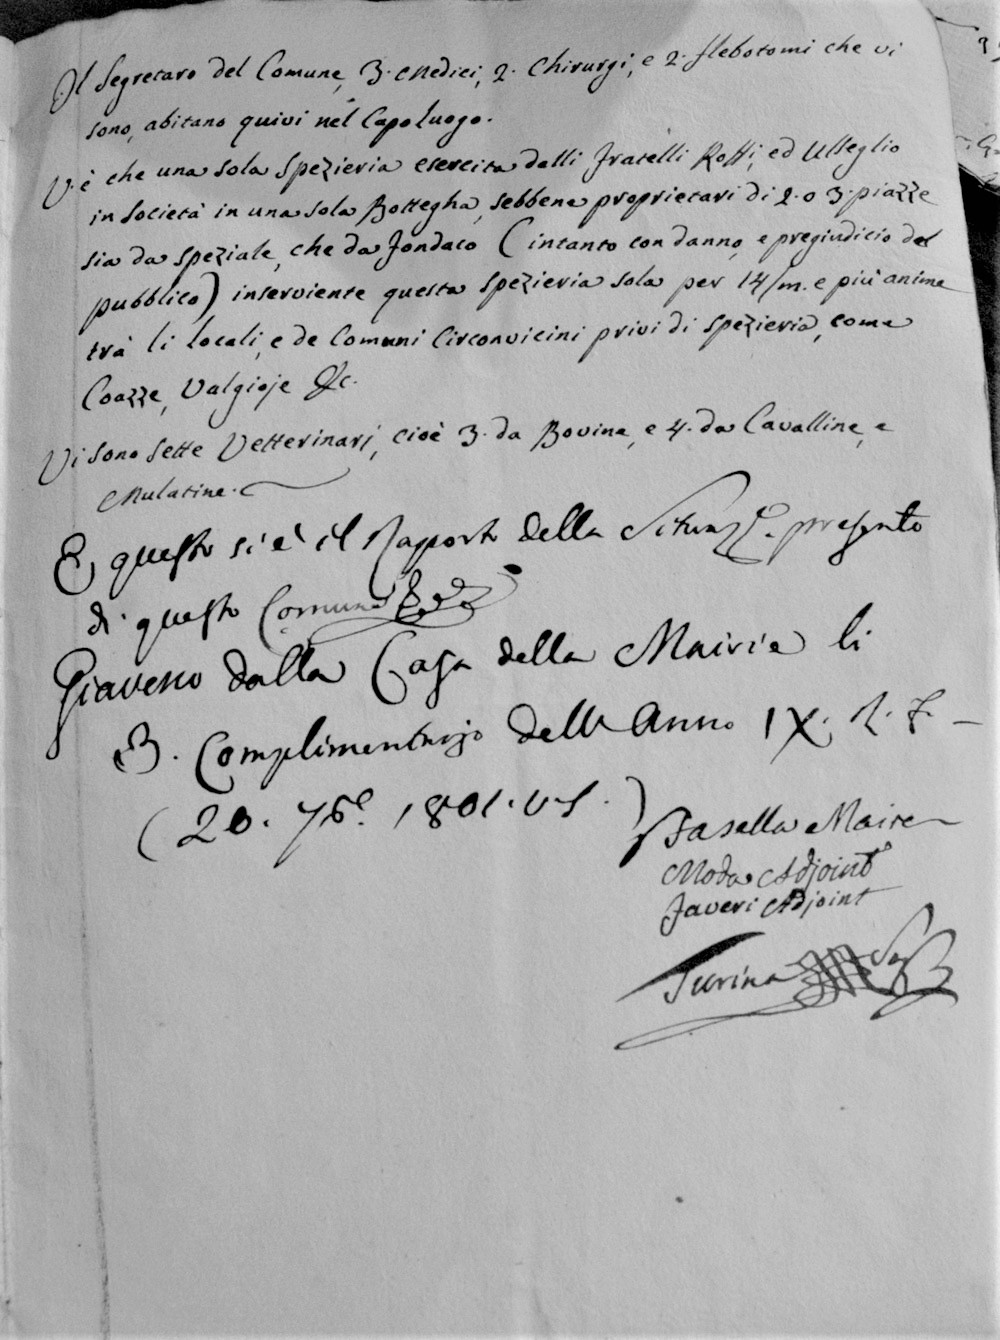 Il Segretaro del Comune, 3. Medici, 2. Chirurgi, e 2. flebotomi che vi
sono, abitano quivi nel Capoluogo.
V'è che una sola Spezieria esercita dalli fratelli Rossi, ed Usseglio
in società in una sola Bottegha, sebbene proprietari di 2. o 3. piazze
sia da speziale, che da fondaco (intanto con danno, e pregiudicio del
pubblico) inserviente questa spezieria sola per 14/m. e più anime
trà li locali, e de Comuni Circonvicini privi di spezieria, come
Coazze, Valgioje &c.
Vi sono sette Vetterinarj, cioè 3. da Bovine, e 4. da Cavalline, e
Mulatine.
E questo si è il Rapporto della Situaz.e presente
di questo Comune
Giaveno dalla Casa della Mairie li
3. Complimentarjo dell'Anno IX. R. F.
(20. 7b.e 1801. v. s.)
Fasella Maire
Moda Adjoint
Javeri Adjoint
Turina